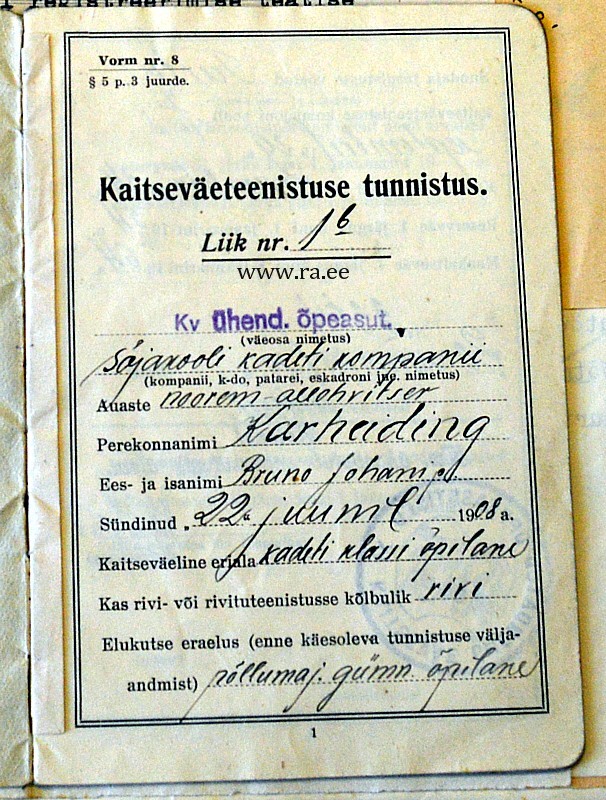 registreerimise teatise
Vorm nr. 8
§ 5 p. 3 juurde.
Kaitseväeteenistuse tunnistus.
Liik nr. 1b
www.ra.ee
Kv ühend. õpeasut.
(väeosa nimetus)
Sõjakooli kadeti kompanii
(kompanii, k-do, patarei, eskadroni jne. nimetus)
Auaste noorem-allohvitser
Perekonnanimi Karheiding
Ees- ja isanimi Bruno Johann p.
Sündinud „22" juunil 1908 a.
Kaitseväeline eriala kadeti klassi õpilane
Kas rivi- või rivituteenistusse kõlbulik rivi
Elukutse eraelus (enne käesoleva tunnistuse välja-
andmist) põllumaj. gümn. õpilane
1